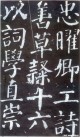 忠曜卿工
善草隸十六
以詞學自崇